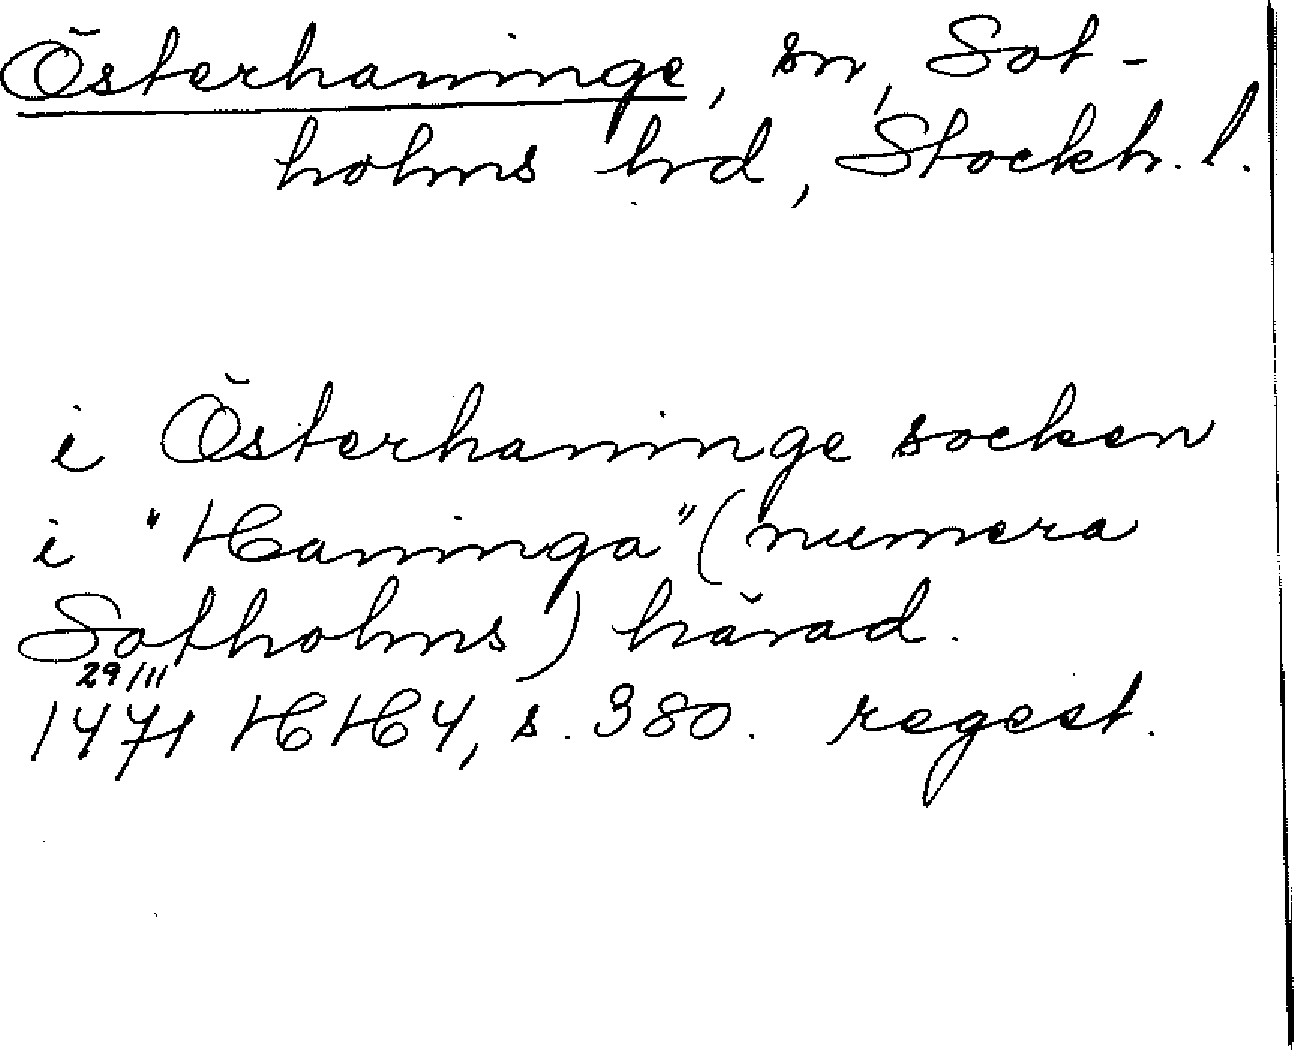 Österhaninge, sn, Sot-
holms hd, Stockh. l.
i Österhaninge socken
i "Haninga" (numera
Sotholms) härad.
29/III
1471 HH4, s. 380. regest.